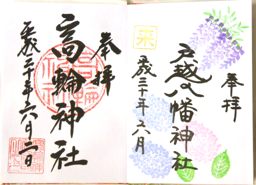 奉拝
高輪神社
平成三十年六月一日
奉拝
戸越八幡神社
平成三十年六月